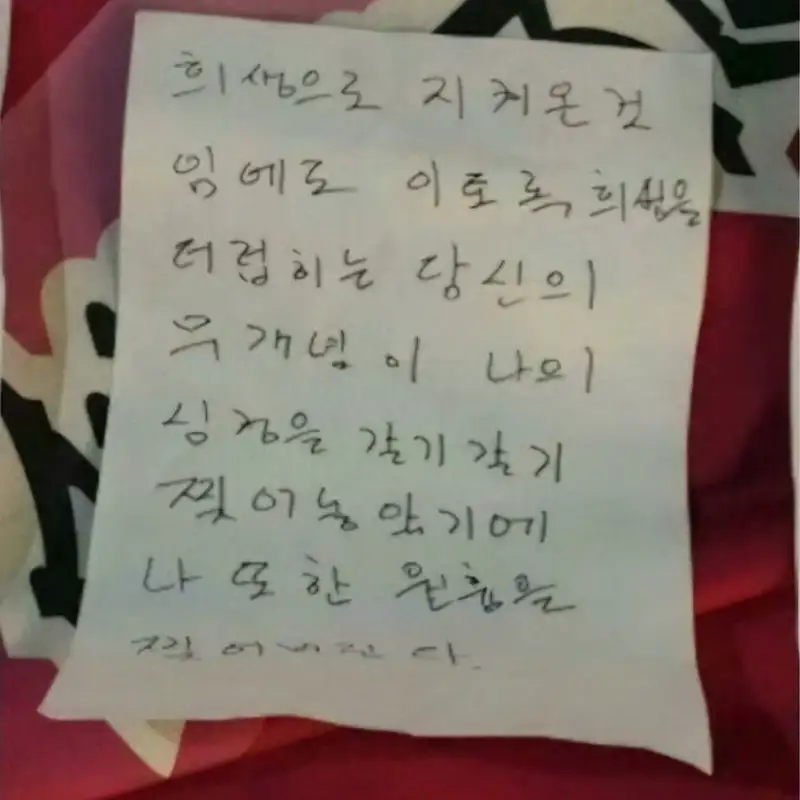 희생으로 지켜온 것
임에도 이토록 희생을
더럽히는 당신의
무개념이 나의
심정을 갈기갈기
찢어놓았기에
나 또한 원흉을
찢어버린다.